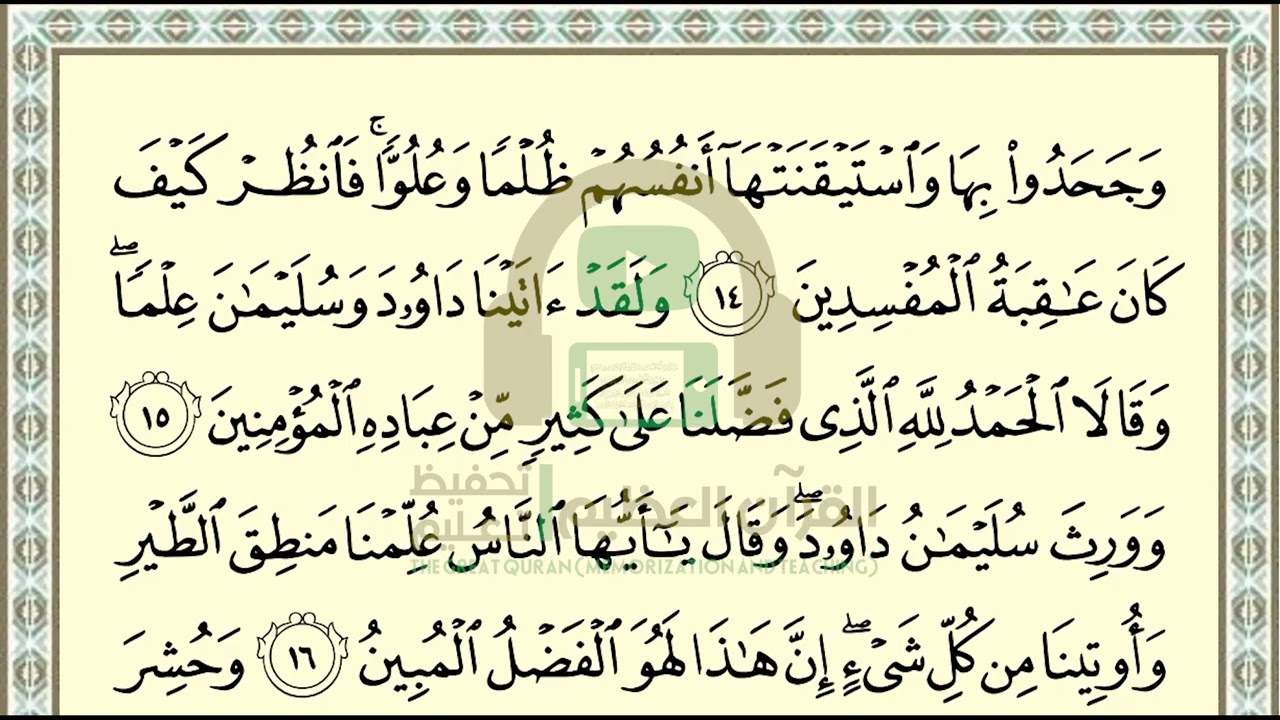 وَجَحَدُوا۟ بِهَا وَٱسْتَيْقَنَتْهَآ أَنفُسُهُمْ ظُلْمًا وَعُلُوًّا ۚ فَٱنظُرْ كَيْفَ
كَانَ عَـٰقِبَةُ ٱلْمُفْسِدِينَ ١٤ وَلَقَدْ ءَاتَيْنَا دَاوُۥدَ وَسُلَيْمَـٰنَ عِلْمًا ۖ
وَقَالَا ٱلْحَمْدُ لِلَّهِ ٱلَّذِى فَضَّلَنَا عَلَىٰ كَثِيرٍ مِّنْ عِبَادِهِ ٱلْمُؤْمِنِينَ ١٥
القرآن العظيم | تحفيظ
تعليم
وَوَرِثَ سُلَيْمَـٰنُ دَاوُۥدَ ۖ وَقَالَ يَـٰٓأَيُّهَا ٱلنَّاسُ عُلِّمْنَا مَنطِقَ ٱلطَّيْرِ
THE GREAT QURAN (MEMORIZATION AND TEACHING)
وَأُوتِينَا مِن كُلِّ شَىْءٍ ۖ إِنَّ هَـٰذَا لَهُوَ ٱلْفَضْلُ ٱلْمُبِينُ ١٦ وَحُشِرَ